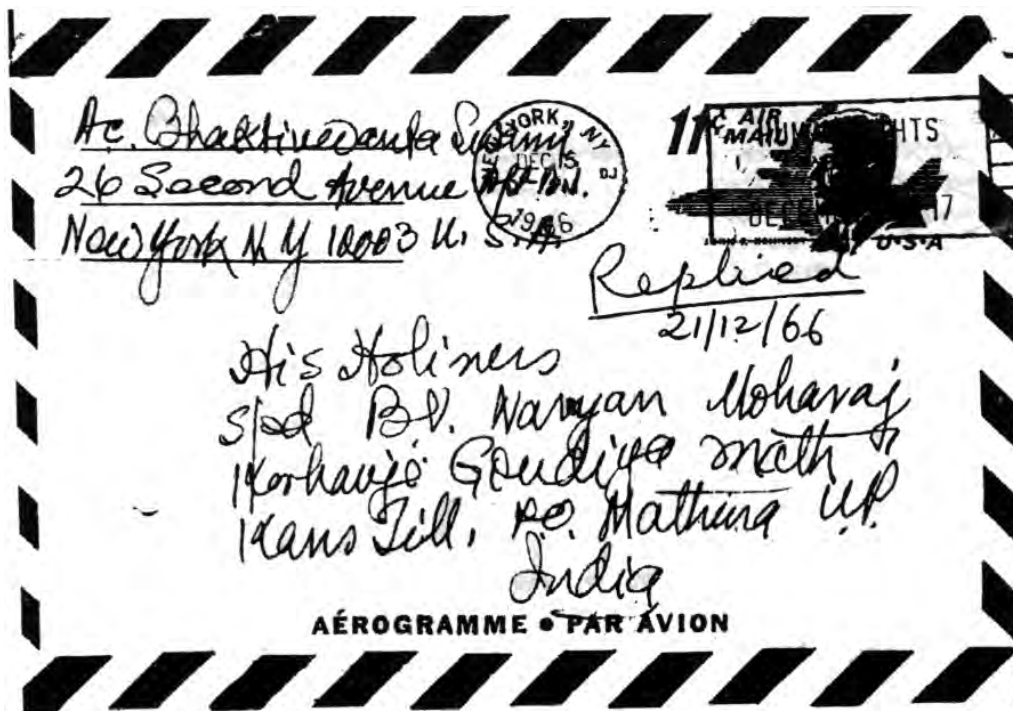 Ac. Bhaktivedanta Swami
26 Second Avenue Apt B.I.
New York N Y 10003 U. S. A.
NEW YORK, NY
DEC 15
1966
DJ
11¢ AIR MAIL
HUMAN RIGHTS
DEC 17
JOHN F. KENNEDY
U·S·A
Replied
21/12/66
His Holiness
Spd B.V. Narayan Moharaj
Keshavji Goudiya math
Kans Till. P.O. Mathura U.P.
India
AÉROGRAMME • PAR AVION